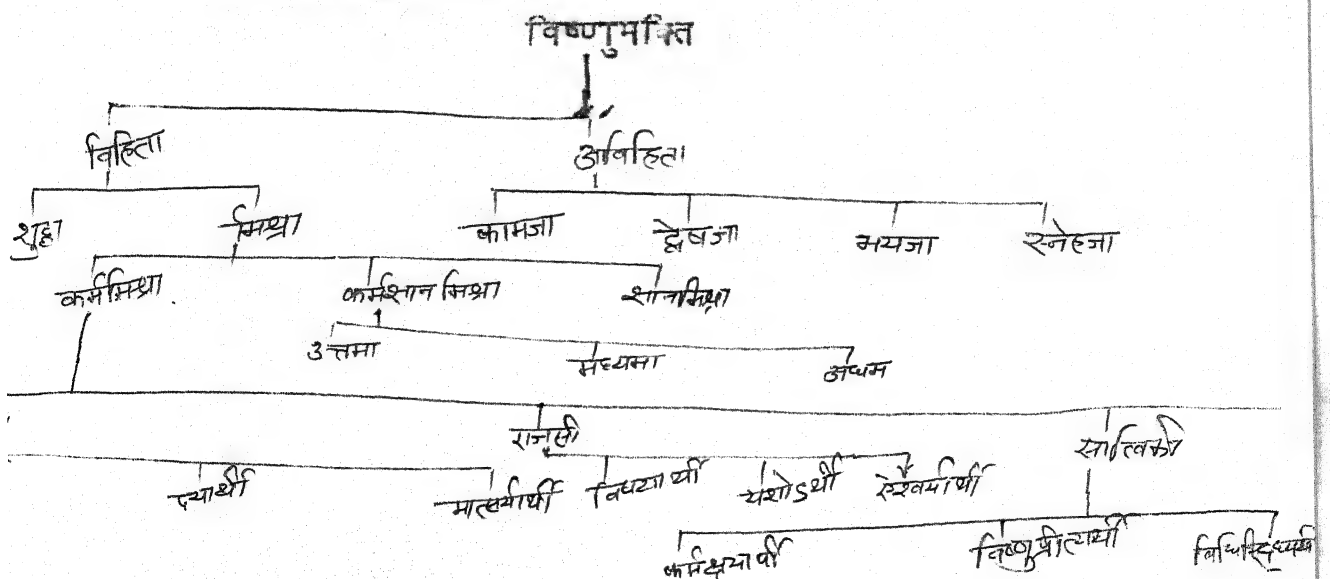 विष्णुभक्ति
विहिता अविहिता
शुद्धा मिश्रा कामजा द्वेषजा भयजा स्नेहजा
कर्ममिश्रा. कर्मज्ञान मिश्रा ज्ञानमिश्रा
उत्तमा मध्यमा अधम
राजसी सात्विकी
मात्सर्यार्थी विषयार्थी यशोऽर्थी ऐश्वर्यार्थी
कर्मक्षयार्थी विष्णुप्रीत्यर्थी